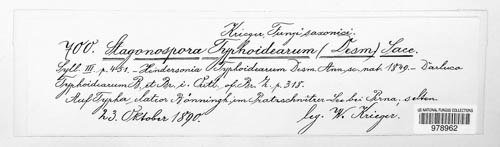 Krieger, Fungi saxonici.
700. Stagonospora Typhoidearum (Desm) Sacc.
Syll. III. p. 451. – Hendersonia Typhoidearum Desm. Ann. sc. nat. 1849. – Darluca
Typhoidearum B. et Br. i. Outl. of Br. F. p. 318.
Auf Typha elatior Bönningh. im Pratzschwitzer See bei Pirna, selten.
23. Oktober 1890. leg. W. Krieger.
US NATIONAL FUNGUS COLLECTIONS
978962